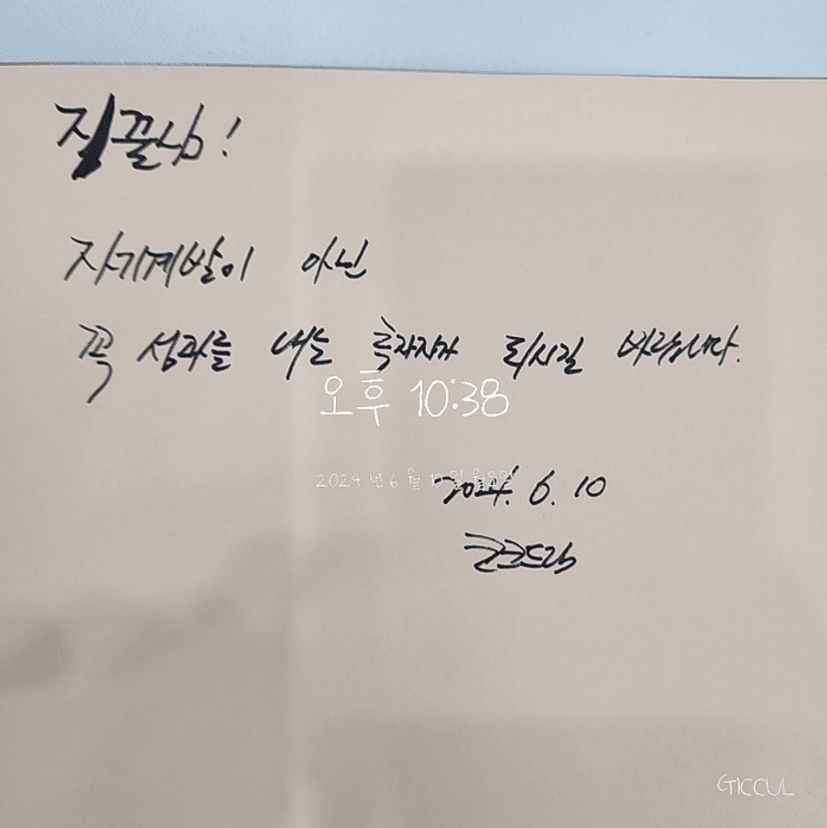 집끌님!
자기계발이 아닌
꼭 성과를 내는 투자자가 되시길 바랍니다.
오후 10:38
2024년 6월 10일 월요일
2024. 6. 10
GTICCUL